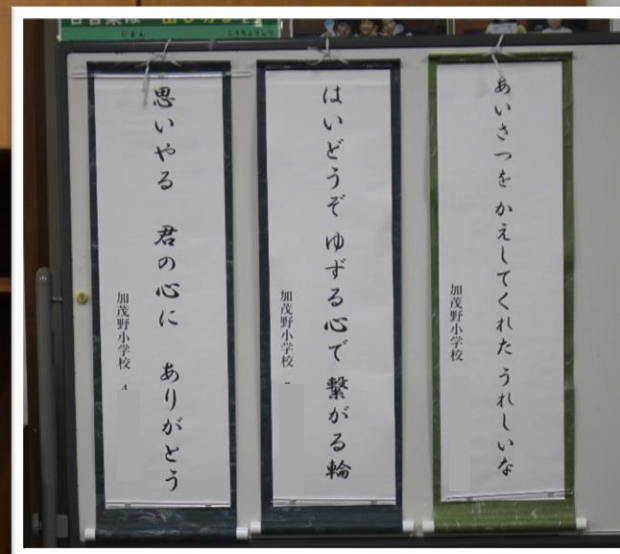 あいさつを かえしてくれた うれしいな
加茂野小学校
はいどうぞ ゆずる心で 繋がる輪
加茂野小学校
思いやる 君の心に ありがとう
加茂野小学校 4
じまん
こうちょうしつ